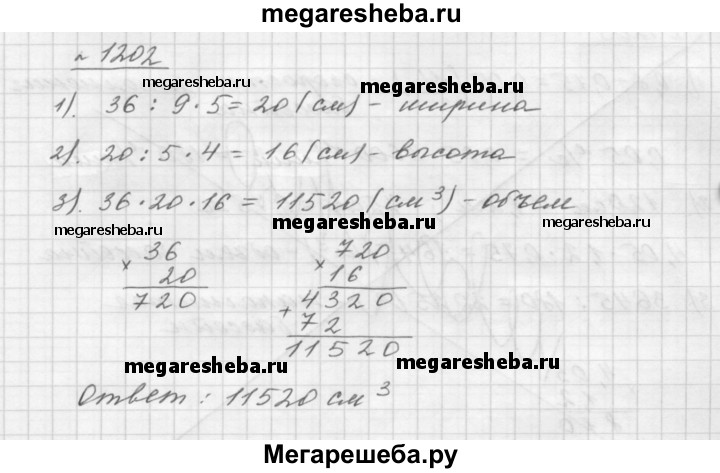 megaresheba.ru
№ 1202
megaresheba.ru megaresheba.ru
1). 36 : 9 · 5 = 20 (см) - ширина
2). 20 : 5 · 4 = 16 (см) - высота
3). 36 · 20 · 16 = 11520 (см³) - объем
megaresheba.ru megaresheba.ru megaresheba.ru
× 36
20
720
× 720
16
+ 4320
72
11520
megaresheba.ru megaresheba.ru
Ответ : 11520 см³
Мегарешеба.ру